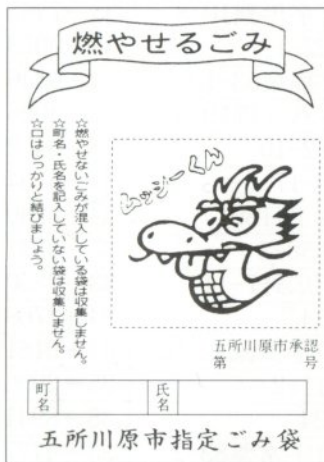 燃やせるごみ
☆燃やせないごみが混入している袋は収集しません。
☆町名・氏名を記入していない袋は収集しません。
☆口はしっかりと結びましょう。
ムッシーくん
五所川原市承認
第　　　号
町名
氏名
五所川原市指定ごみ袋